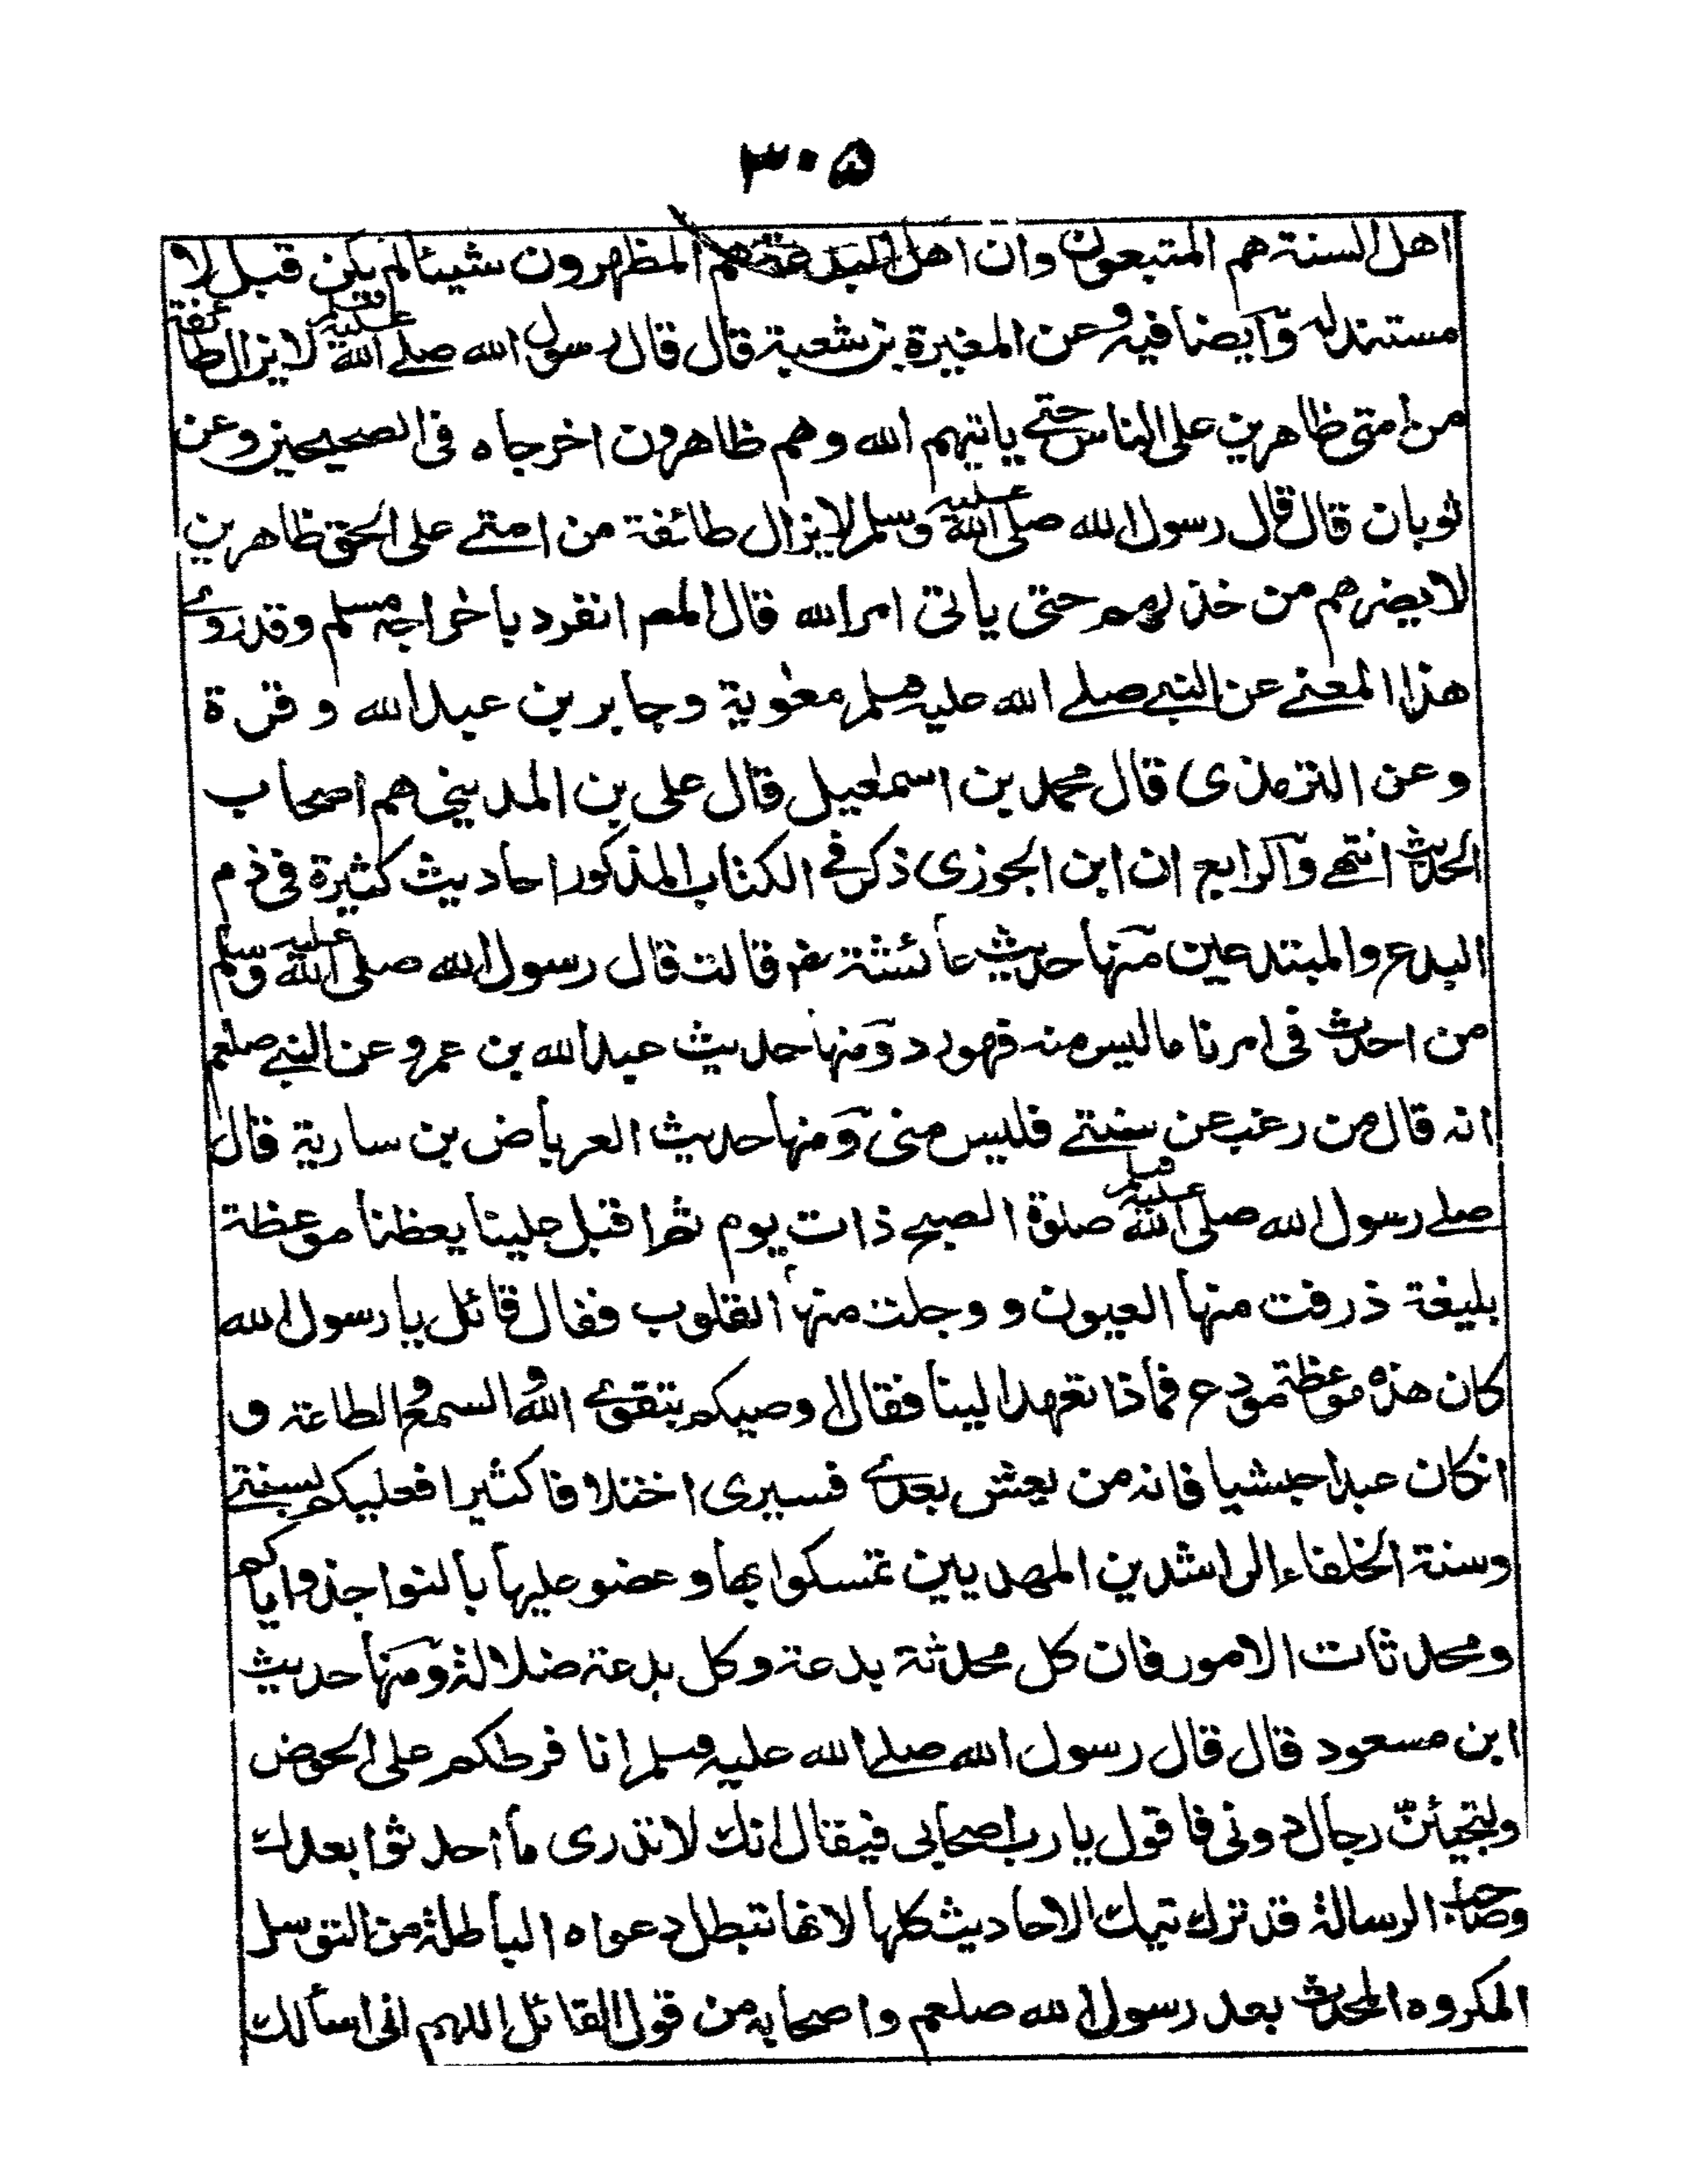 ۳۰۵
اهل السنة هم المتبعون وان اهل البدعة هم المظهرون شيئا لم يكن قبل لا
مستند له وايضا فيه وعن المغيرة بن شعبة قال قال رسول الله صلے الله عليه وسلم لا يزال طائفة
من امتى ظاهرين على الناس حتے ياتيهم الله وهم ظاهرون اخرجاه فى الصحيحين وعن
ثوبان قال قال رسول الله صلى الله عليه وسلم لا يزال طائفة من امتے على الحق ظاهرين
لا يضرهم من خذلهم حتى ياتى امر الله قال المص انفرد باخراجه مسلم وقد روے
هذا المعنے عن النبے صلے الله عليه وسلم معوية وجابر بن عبد الله و قرة
وعن الترمذى قال محمد بن اسمعيل قال على بن المدينى هم اصحاب
الحديث انتهے والرابع ان ابن الجوزى ذكر فے الكتاب المذكور احاديث كثيرة فى ذم
البدع والمبتدعين منها حديث عائشة رض قالت قال رسول الله صلى الله عليه وسلم
من احدث فى امرنا ما ليس منه فهو رد ومنها حديث عبد الله بن عمرو عن النبے صلعم
انه قال من رغب عن سنتے فليس منى ومنها حديث العرباض بن سارية قال
صلے رسول الله صلى الله عليه وسلم صلوة الصبح ذات يوم ثم اقبل علينا يعظنا موعظة
بليغة ذرفت منها العيون و وجلت منها القلوب فقال قائل يا رسول الله
كان هذه موعظة مودع فما ذا تعهد الينا فقال اوصيكم بتقوے الله والسمع والطاعة و
ان كان عبدا حبشيا فانه من يعش بعدے فسيرى اختلافا كثيرا فعليكم بسنتے
وسنة الخلفاء الراشدين المهديين تمسكوا بها وعضو عليها بالنواجذ واياكم
ومحدثات الامور فان كل محدثة بدعة وكل بدعة ضلالة ومنها حديث
ابن مسعود قال قال رسول الله صلے الله عليه وسلم انا فرطكم على الحوض
وليجيئن رجال دونى فاقول يا رب اصحابى فيقال انك لا تدرى ما احدثوا بعدك
وصاحب الرسالة قد ترك تيك الاحاديث كلها لانها تبطل دعواه الباطلة من التوسل
المكروه المحدث بعد رسول الله صلعم واصحابه من قول القائل اللهم انى اسألك